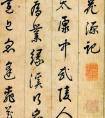 花源記
太康中武陵人
為業緣溪行忘
遠近忽逢桃